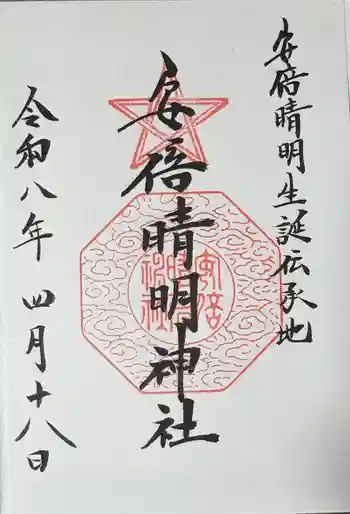 安倍晴明生誕伝承地
安倍晴明神社
令和八年 四月十八日